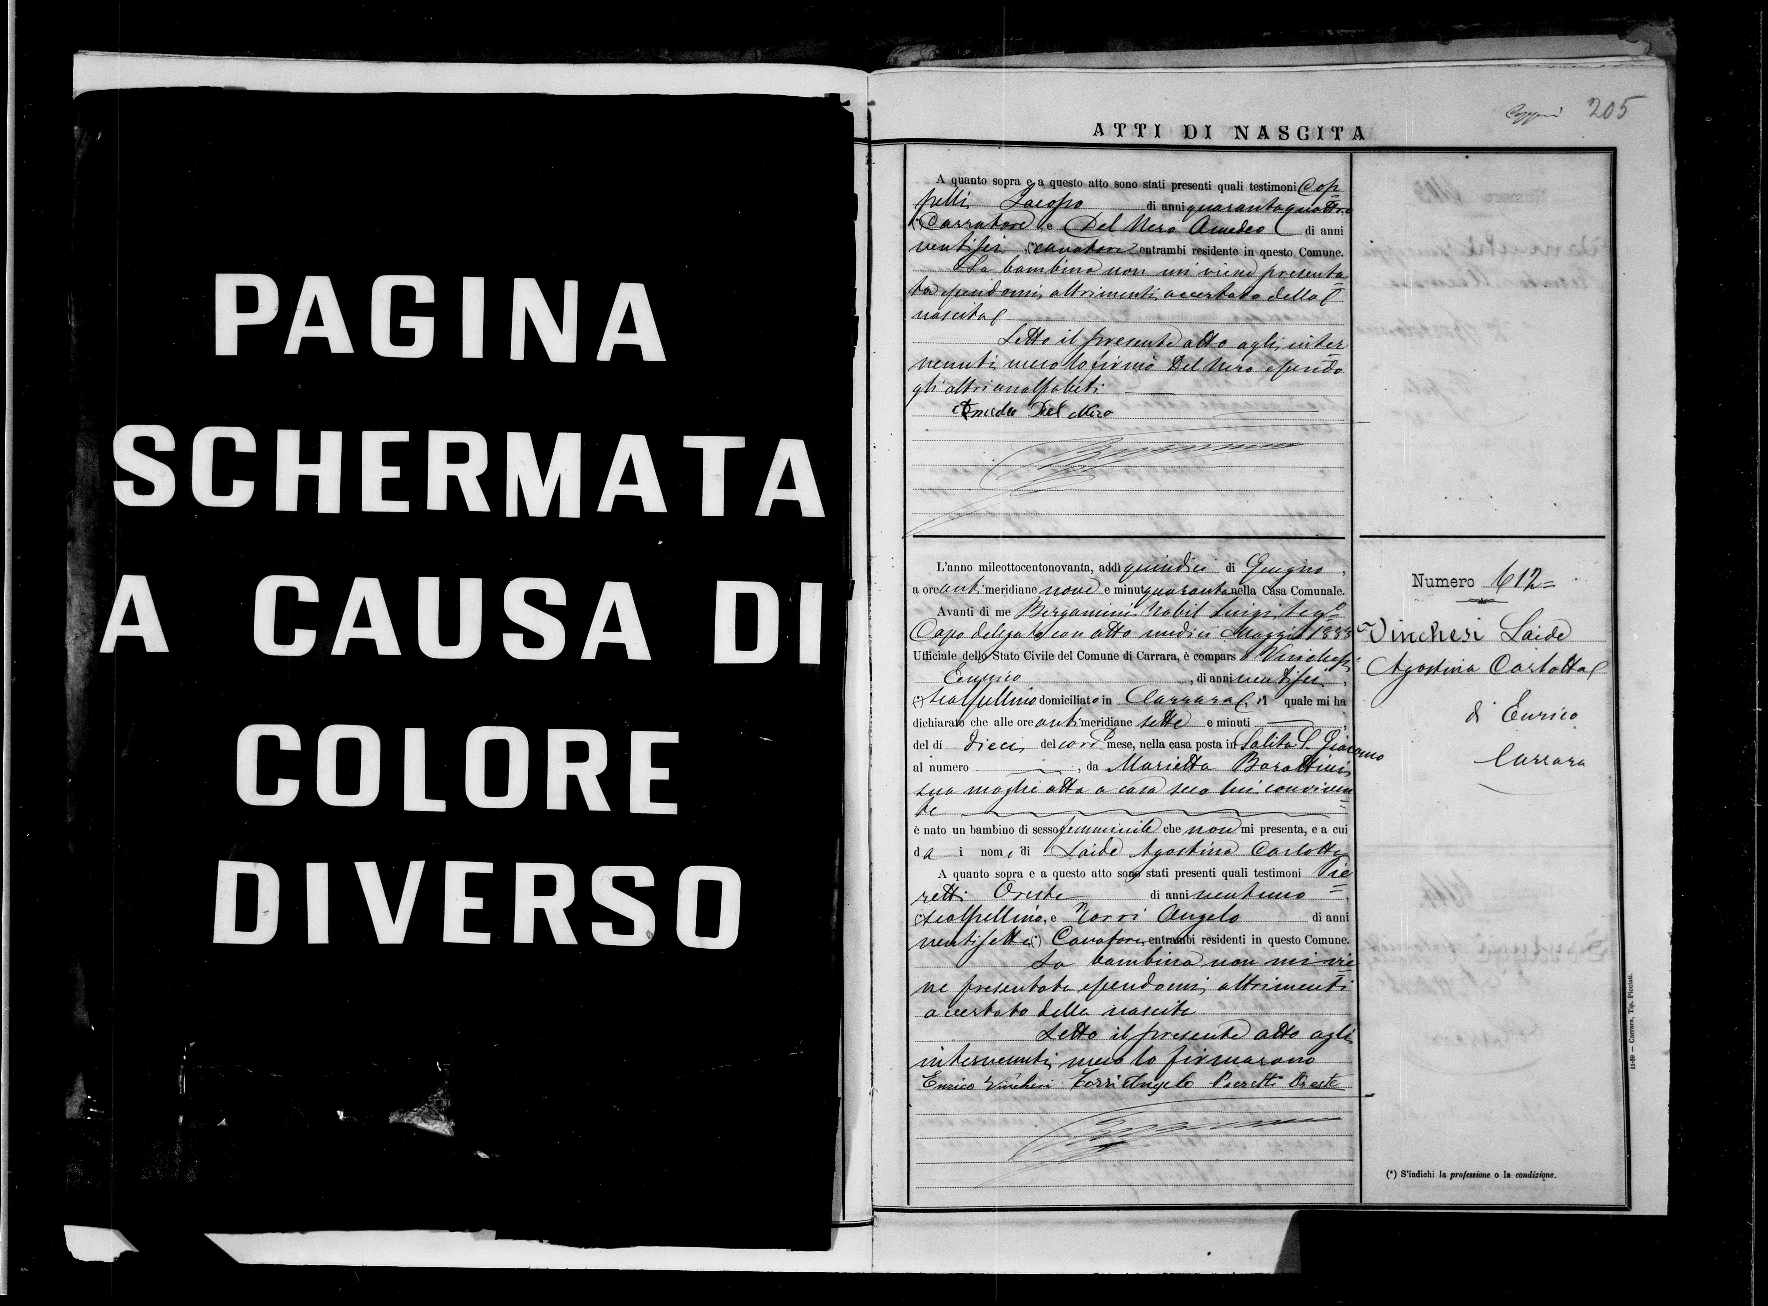 PAGINA
SCHERMATA
A CAUSA DI
COLORE
DIVERSO
205
ATTI DI NASCITA
A quanto sopra e a questo atto sono stati presenti quali testimoni Cop
pelli Jacopo di anni quarantaquattro
Carratore e Del Nero Amedeo di anni
ventisei (*) cavatore entrambi residente in questo Comune.
La bambina non mi viene presenta
ta essendomi altrimenti accertato della
nascita
Letto il presente atto agli inter
venuti, meco lo firmò Del Nero essendo
gli altri analfabeti
Amedeo Del Nero
L'anno milleottocentonovanta, addì quindici di Giugno,
a ore anti meridiane nove e minuti quaranta nella Casa Comunale.
Avanti di me Bergamini Nobil Luigi Seg.o
Capo delegato con atto undici Maggio 1888
Uffiziale dello Stato Civile del Comune di Carrara, è comparso Vinchesi
Enrico, di anni ventisei,
(*) scalpellino domiciliato in Carrara, il quale mi ha
dichiarato che alle ore anti meridiane sette e minuti
del dí dieci del corr.e mese, nella casa posta in Salita S. Giacomo
al numero , da Marietta Barattini
sua moglie atta a casa seco lui conviven
te
è nato un bambino di sesso femminile che non mi presenta, e a cui
da i nomi di Laide Agostina Carlotta
A quanto sopra e a questo atto sono stati presenti quali testimoni Pie
retti Oreste di anni ventuno,
(*) scalpellino, e Torri Angelo di anni
ventisette (*) Cavatore, entrambi residenti in questo Comune.
La bambina non mi vie
ne presentata essendomi altrimenti
accertato della nascita
Letto il presente atto agli
intervenuti, meco lo firmarono
Enrico Vinchesi Torri Angelo Pieretti Oreste
Numero 612=
Vinchesi Laide
Agostina Carlotta
di Enrico
Carrara
(*) S'indichi la professione o la condizione.